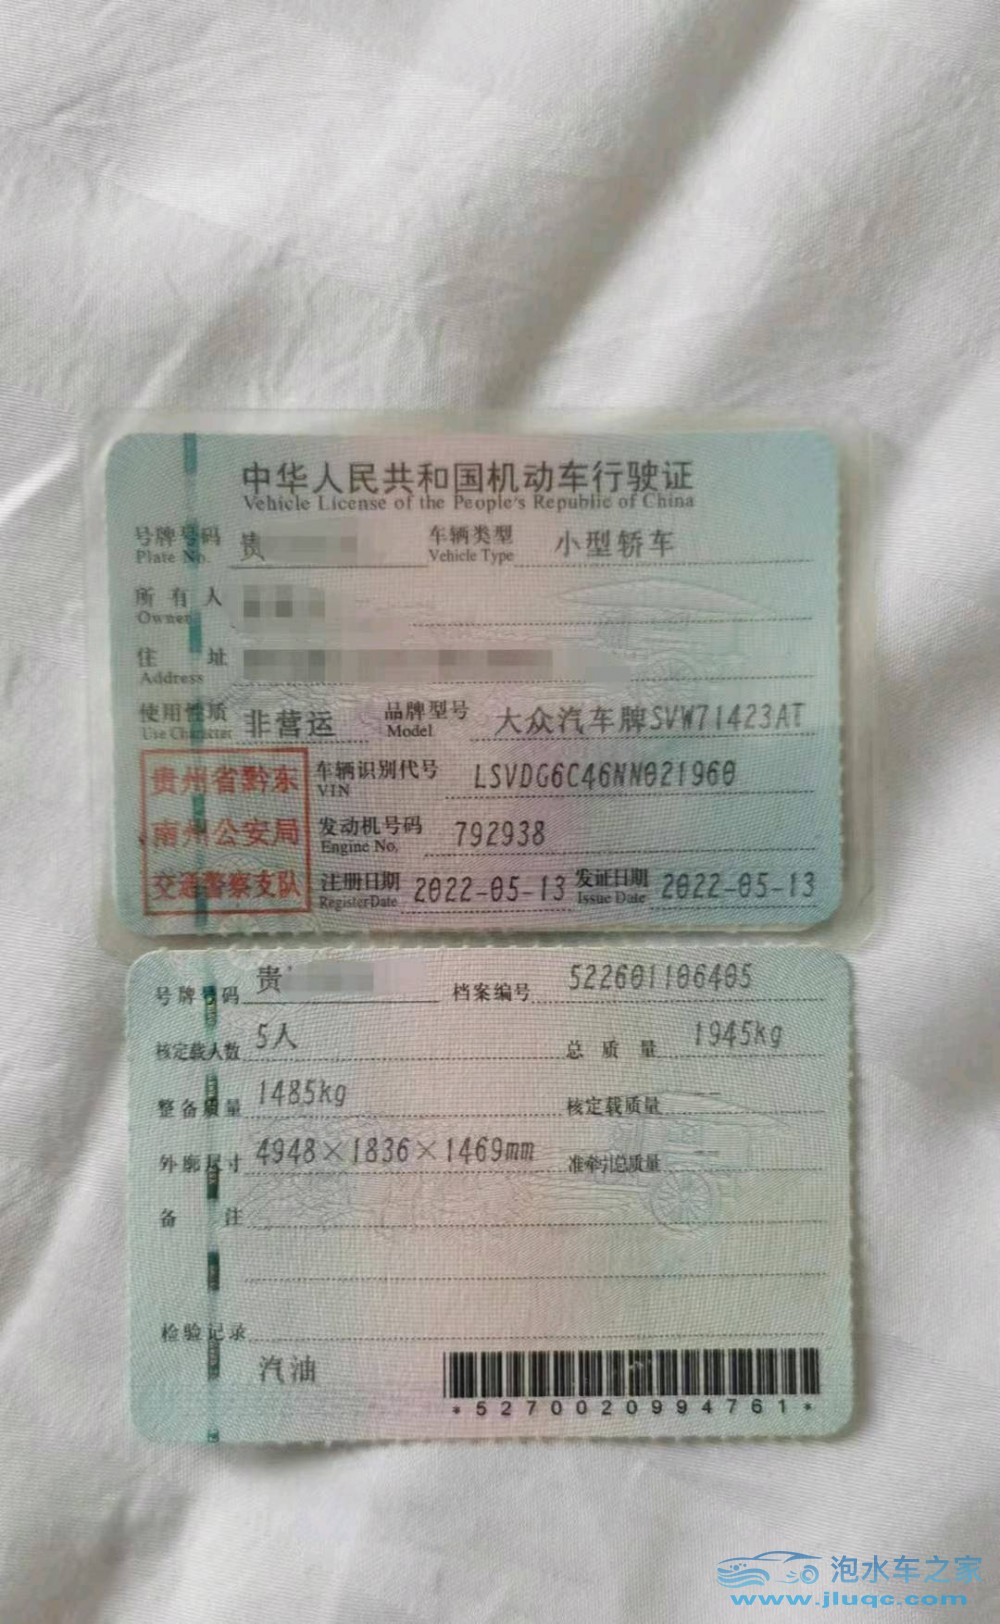 中华人民共和国机动车行驶证
Vehicle License of the People's Republic of China
号牌号码 贵 车辆类型 小型轿车
Plate No. Vehicle Type
所有人
Owner
住址
Address
使用性质 非营运 品牌型号 大众汽车牌SVW71423AT
Use Character Model
贵州省黔东
南州公安局
交通警察支队
车辆识别代号 LSVDG6C46NN021960
VIN
发动机号码 792938
Engine No.
注册日期 2022-05-13 发证日期 2022-05-13
Register Date Issue Date
号牌号码 贵 档案编号 522601106405
核定载人数 5人 总质量 1945kg
整备质量 1485kg 核定载质量 --
外廓尺寸 4948×1836×1469mm 准牵引总质量 --
备注
检验记录
汽油
*5270020994761*
泡水车之家
www.jluqc.com